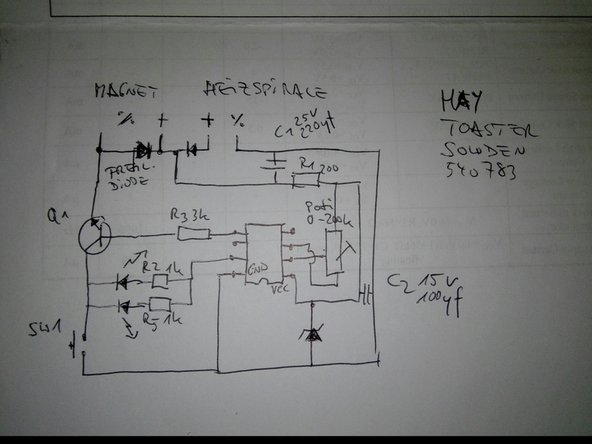 MAGNET HEIZSPIRALE
% + + %
C1 25V
220µf
HAY
TOASTER
SOWDEN
540783
R1 200
FREIL.
DIODE
Q1
R3 3k
Poti
0-200k
R2 1k
GND
VCC
C2 15V
100µf
R5 1k
SW1